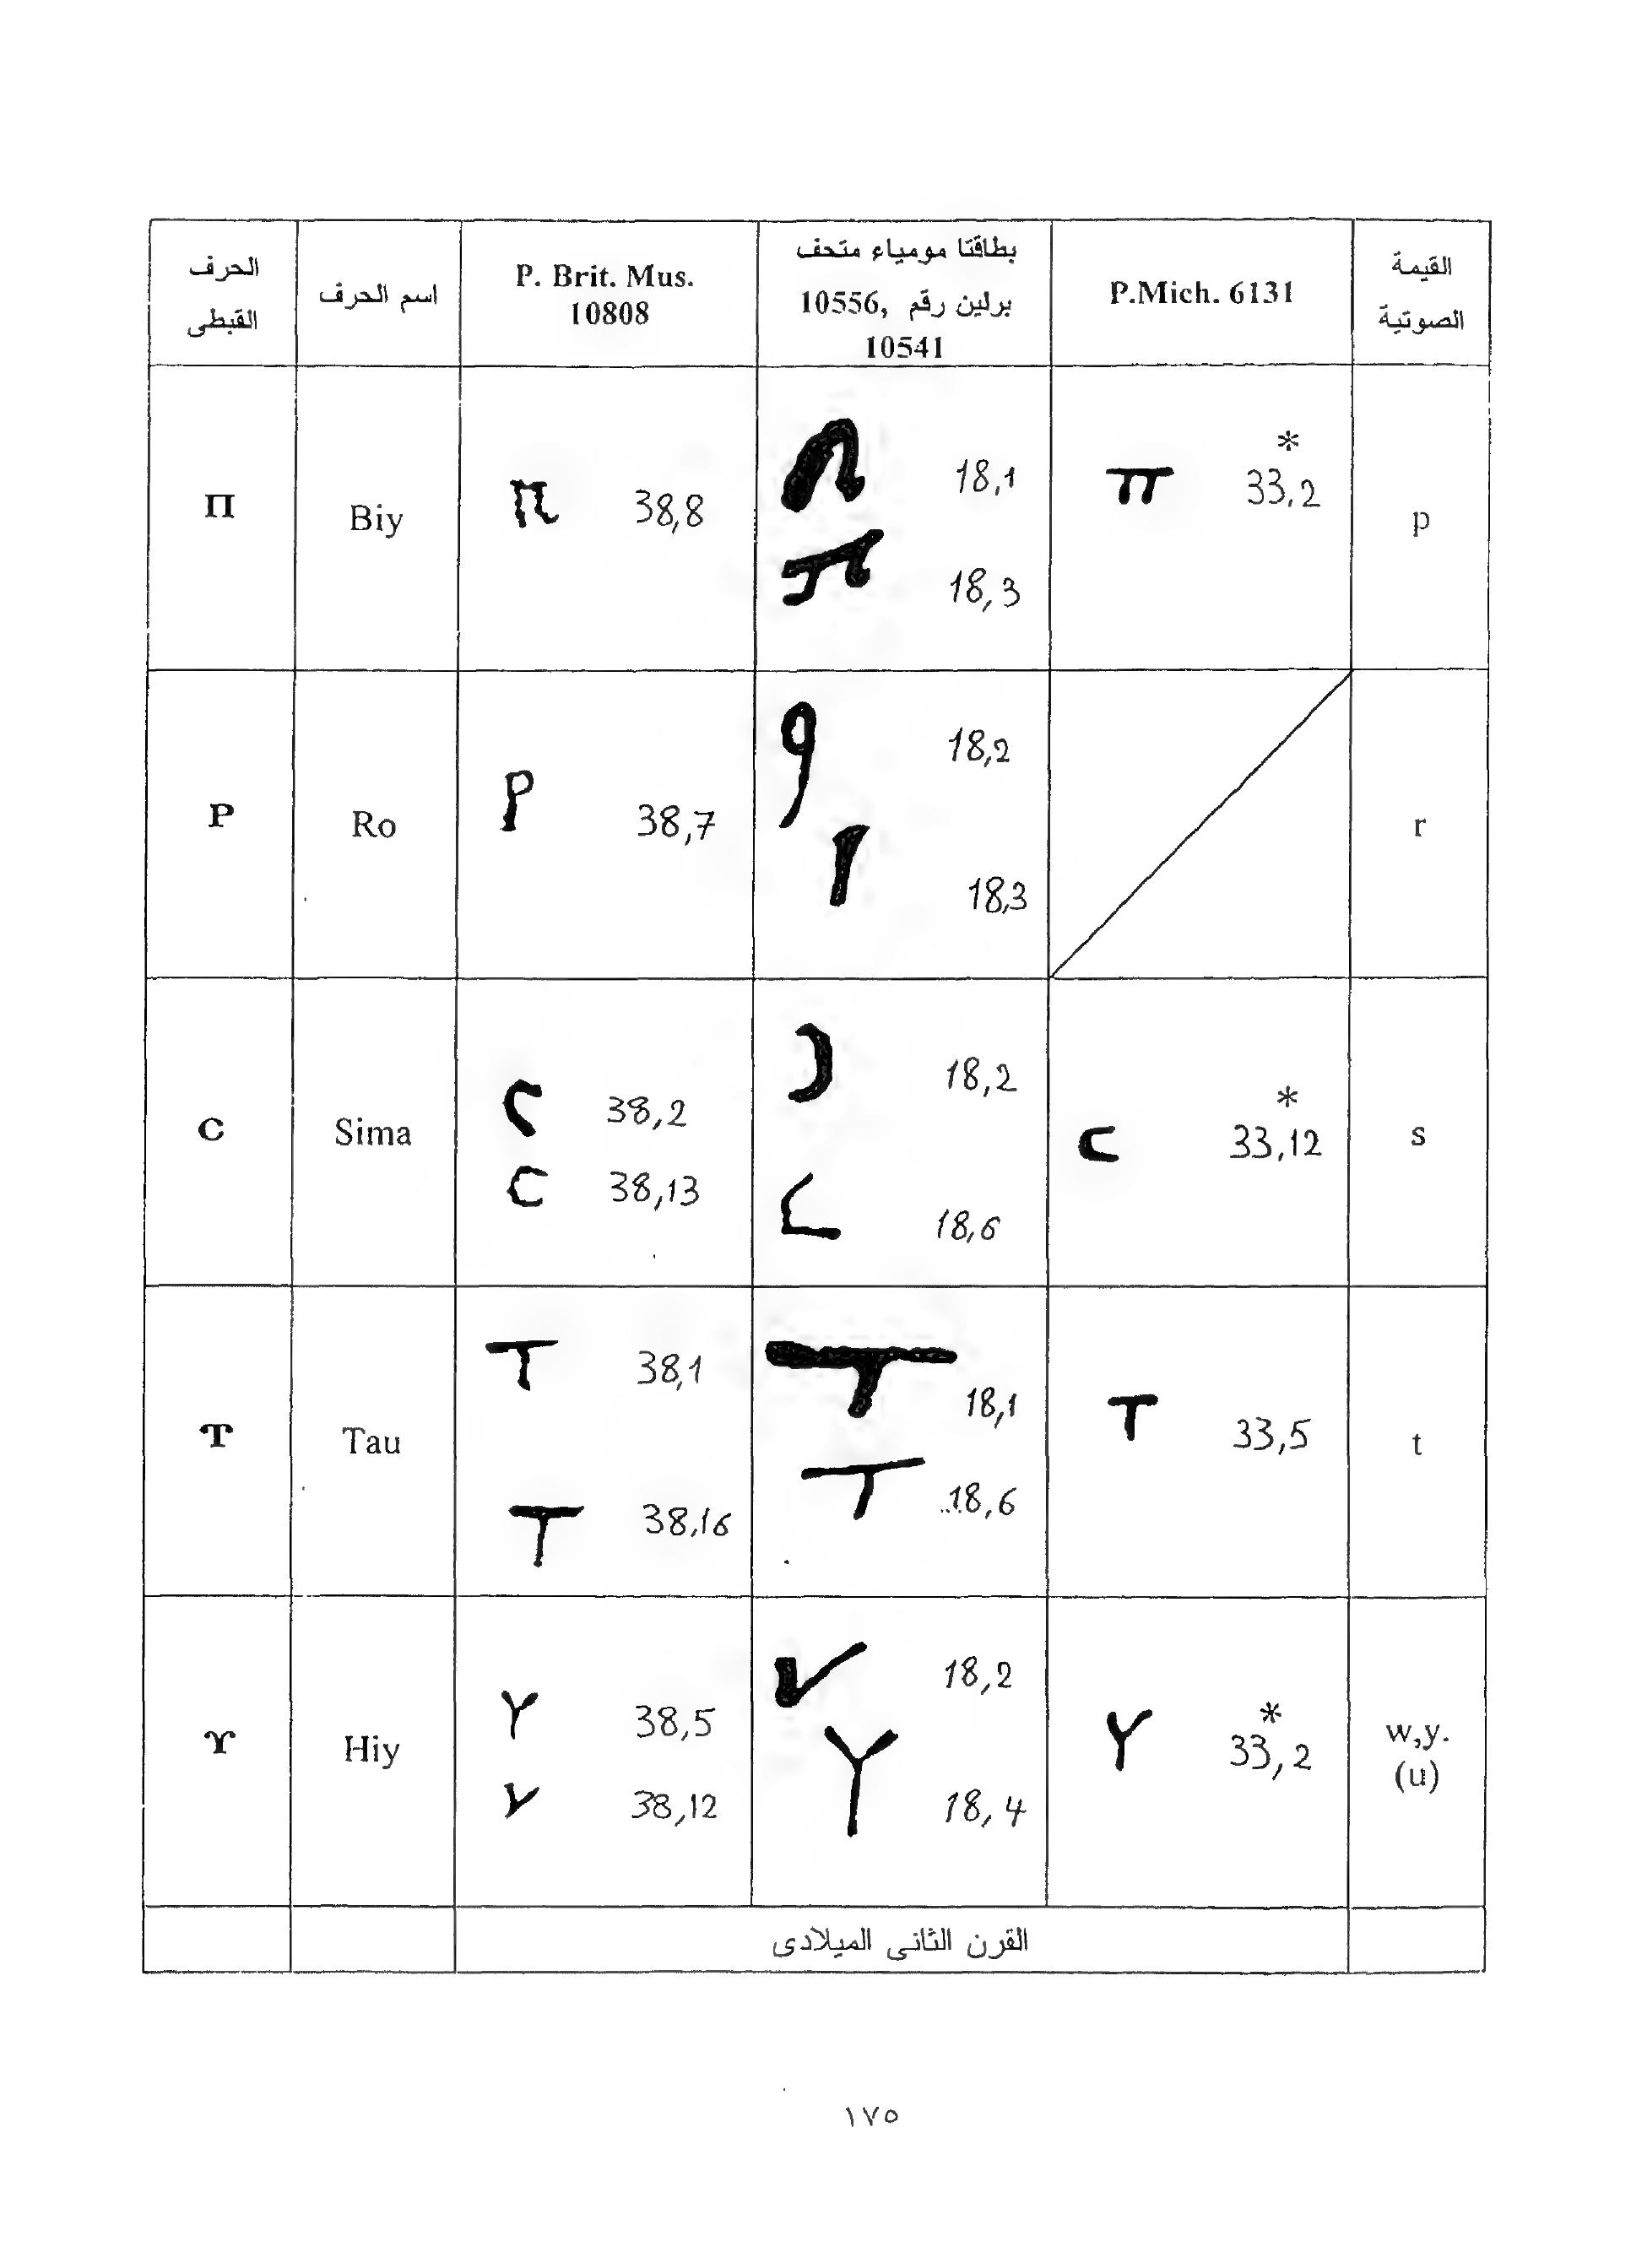 الحرف القبطى | اسم الحرف | P. Brit. Mus. 10808 | بطاقتا مومياء متحف برلين رقم 10556, 10541 | P.Mich. 6131 | القيمة الصوتية
Ⲡ | Biy | ⲡ 38,8 | ⲡ 18,1 ⲡ 18,3 | ⲡ * 33,2 | p
Ⲣ | Ro | ⲣ 38,7 | ⲣ 18,2 ⲣ 18,3 | r
Ⲥ | Sima | ⲥ 38,2 ⲥ 38,13 | ⲥ 18,2 ⲥ 18,6 | ⲥ * 33,12 | s
Ⲧ | Tau | ⲧ 38,1 ⲧ 38,16 | ⲧ 18,1 ⲧ 18,6 | ⲧ 33,5 | t
Ⲩ | Hiy | ⲩ 38,5 ⲩ 38,12 | ⲩ 18,2 ⲩ 18,4 | ⲩ * 33,2 | w,y. (u)
القرن الثانى الميلادى
١٧٥